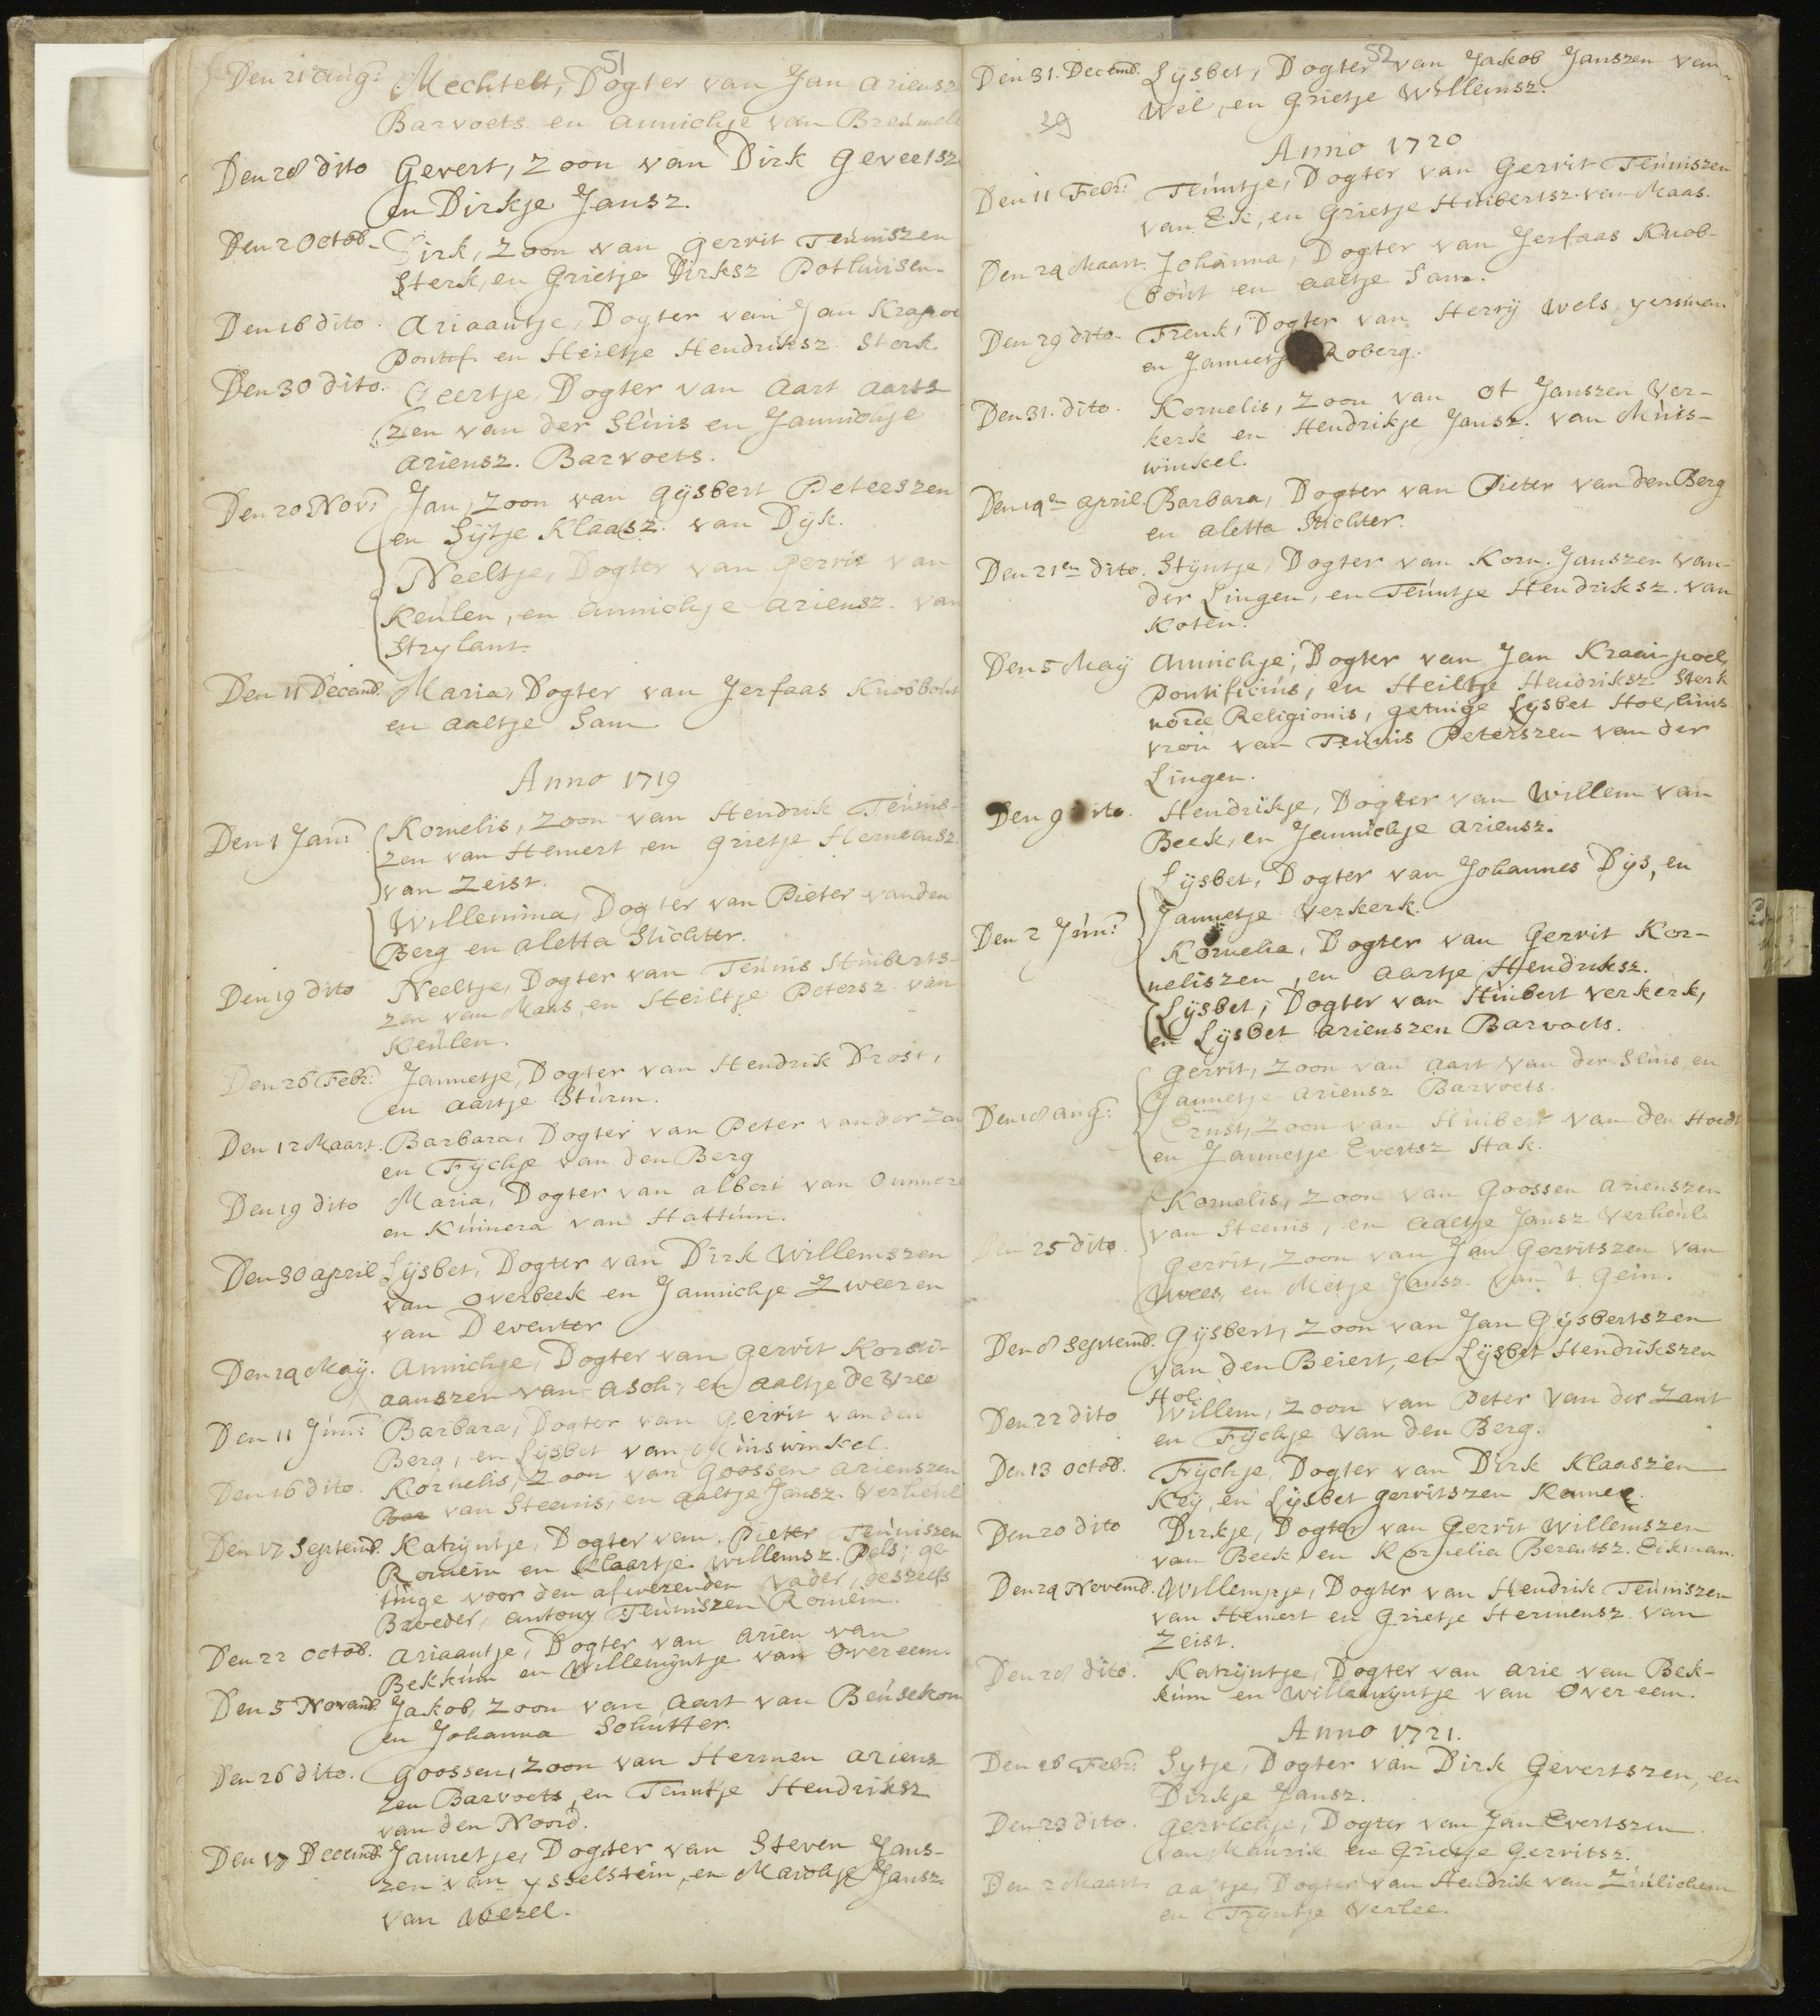 51
Den 21 Aug: Mechtelt, Dogter van Jan Ariensz
Barvoets en Annichje van Breumel
Den 28 dito Gevert, Zoon van Dirk Gevertsz
en Dirkje Jansz.
Den 2 Octob. Dirk, Zoon van Gerrit Teuniszen
Sterk, en Grietje Dirksz Pothuisen.
Den 16 dito. Ariaantje, Dogter van Jan Krapoe
Pontif. en Heiltje Hendriksz Sterk
Den 30 dito. Geertje, Dogter van Aart Aarts
Zen van der Sluis en Jannichje
Ariensz. Barvoets.
Den 20 Nov: Jan, Zoon van Gysbert Peterszen
en Sijtje Klaasz. van Dyk.
Neeltje, Dogter van Gerrit van
Keulen, en Annichje Ariensz. van
Strylant.
Den 11 Decemb. Maria, Dogter van Jerfaas Knobbout
en Aaltje Sam
Anno 1719
Den 1 Jan: Kornelis, Zoon van Hendrik Teunis-
zen van Hemert en Grietje Hermensz
van Zeist.
Willemina, Dogter van Pieter vanden
Berg en Aletta Stichter.
Den 19 dito Neeltje, Dogter van Teunis Huiberts-
zen van Maas, en Heiltje Petersz van
Keulen.
Den 26 Febr: Jannetje, Dogter van Hendrik Drost,
en Aartje Sturm.
Den 12 Maart. Barbara, Dogter van Peter van der Zan
en Fychje van den Berg
Den 19 dito Maria, Dogter van Albert van Ommere
en Kunnera van Hattum.
Den 30 April Lysbet, Dogter van Dirk Willemszen
van Overbeek en Jannichje Zweeren
van Deventer
Den 29 May. Annichje, Dogter van Gerrit Korsti-
aanszen van Asch, en Aaltje de Vree
Den 11 Jun: Barbara, Dogter van Gerrit van den
Berg, en Lysbet van Muiswinkel.
Den 16 dito. Kornelis, Zoon van Goossen Arienszen
van Steenis, en Aaltje Jansz. Verheul
Den 17 Septemb. Katryntje, Dogter van Pieter Teuniszen
Romein en Klaartje Willemsz. Pels; ge-
tuige voor den afwezenden vader, deszelfs
Broeder, Antony Teuniszen Romein.
Den 22 Octob. Ariaantje, Dogter van Arien van
Bekkum en Willemyntje van Overeem.
Den 5 Novemb. Jakob, Zoon van Aart van Beusekom
en Johanna Schutter.
Den 26 dito. Goossen, Zoon van Hermen Ariens-
zen Barvoets, en Teuntje Hendriksz
van den Noord.
Den 17 Decemb. Jannetje, Dogter van Steven Jans-
zen van Ysselstein, en Marichje Jansz.
van Wezel.
52
Den 31. Decemb. Lysbet, Dogter van Jakob Janszen van
Wel, en Grietje Willemsz.
39
Anno 1720
Den 11 Febr: Teuntje, Dogter van Gerrit Teuniszen
van Ek, en Grietje Huibertsz. van Maas.
Den 24 Maart. Johanna, Dogter van Jerfaas Knob-
bout en Aaltje Sam.
Den 29 dito. Frenk, Dogter van Herry Wels, yersman
en Jannetje Roberg.
Den 31. dito. Kornelis, Zoon van Ot Janszen Ver-
kerk en Hendrikje Jansz. van Muis-
winkel.
Den 19en April Barbara, Dogter van Pieter van den Berg
en Aletta Stichter.
Den 21en dito. Styntje, Dogter van Korn. Janszen van
der Lingen, en Teuntje Hendriksz. van
Koten.
Den 5 May Annichje, Dogter van Jan Kraaipoel,
Pontificius, en Heiltje Hendriksz Sterk
nostræ Religionis, getuige Lysbet Hoe,
vrou van Teunis Peterszen van der
Lingen.
Den 9 dito. Hendrikje, Dogter van Willem van
Beek, en Jannichje Ariensz.
Den 2 Jun: Lysbet, Dogter van Johannes Dys, en
Jannetje Verkerk.
Kornelia, Dogter van Gerrit Kor-
neliszen, en Aartje Hendriksz.
Lysbet, Dogter van Huibert Verkerk,
en Lysbet Arienszen Barvoets.
Den 18 Aug: Gerrit, Zoon van Aart van der Sluis, en
Jannetje Ariensz Barvoets.
Ernst, Zoon van Huibert van den Hoedt
en Jannetje Evertsz Hak.
Den 25 dito. Kornelis, Zoon van Goossen Arienszen
van Steenis, en Aaltje Jansz Verheul.
Gerrit, Zoon van Jan Gerritszen van
Wees, en Metje Jansz. van 't Gein.
Den 8 Septemb. Gysbert, Zoon van Jan Gysbertszen
van den Beiert, en Lysbet Hendrikszen
Hol.
Den 22 dito Willem, Zoon van Peter van der Zant
en Fychje van den Berg.
Den 13 Octob. Frychje, Dogter van Dirk Klaaszen
Key, en Lysbet Gerritszen Konnee.
Den 20 dito Dirkje, Dogter van Gerrit Willemszen
van Beek en Kornelia Berentsz. Eikman.
Den 24 Novemb. Willempje, Dogter van Hendrik Teuniszen
van Hemert en Grietje Hermensz. van
Zeist.
Den 28 dito. Katryntje, Dogter van Arie van Bek-
kum en Willemyntje van Overeem.
Anno 1721.
Den 16 Febr: Sytje, Dogter van Dirk Gevertszen, en
Dirkje Jansz.
Den 23 dito. Gerrichje, Dogter van Jan Evertszen
van Maurik en Grietje Gerritsz.
Den 2 Maart. Aaltje, Dogter van Hendrik van Zuilichem
en Tryntje Verlee.